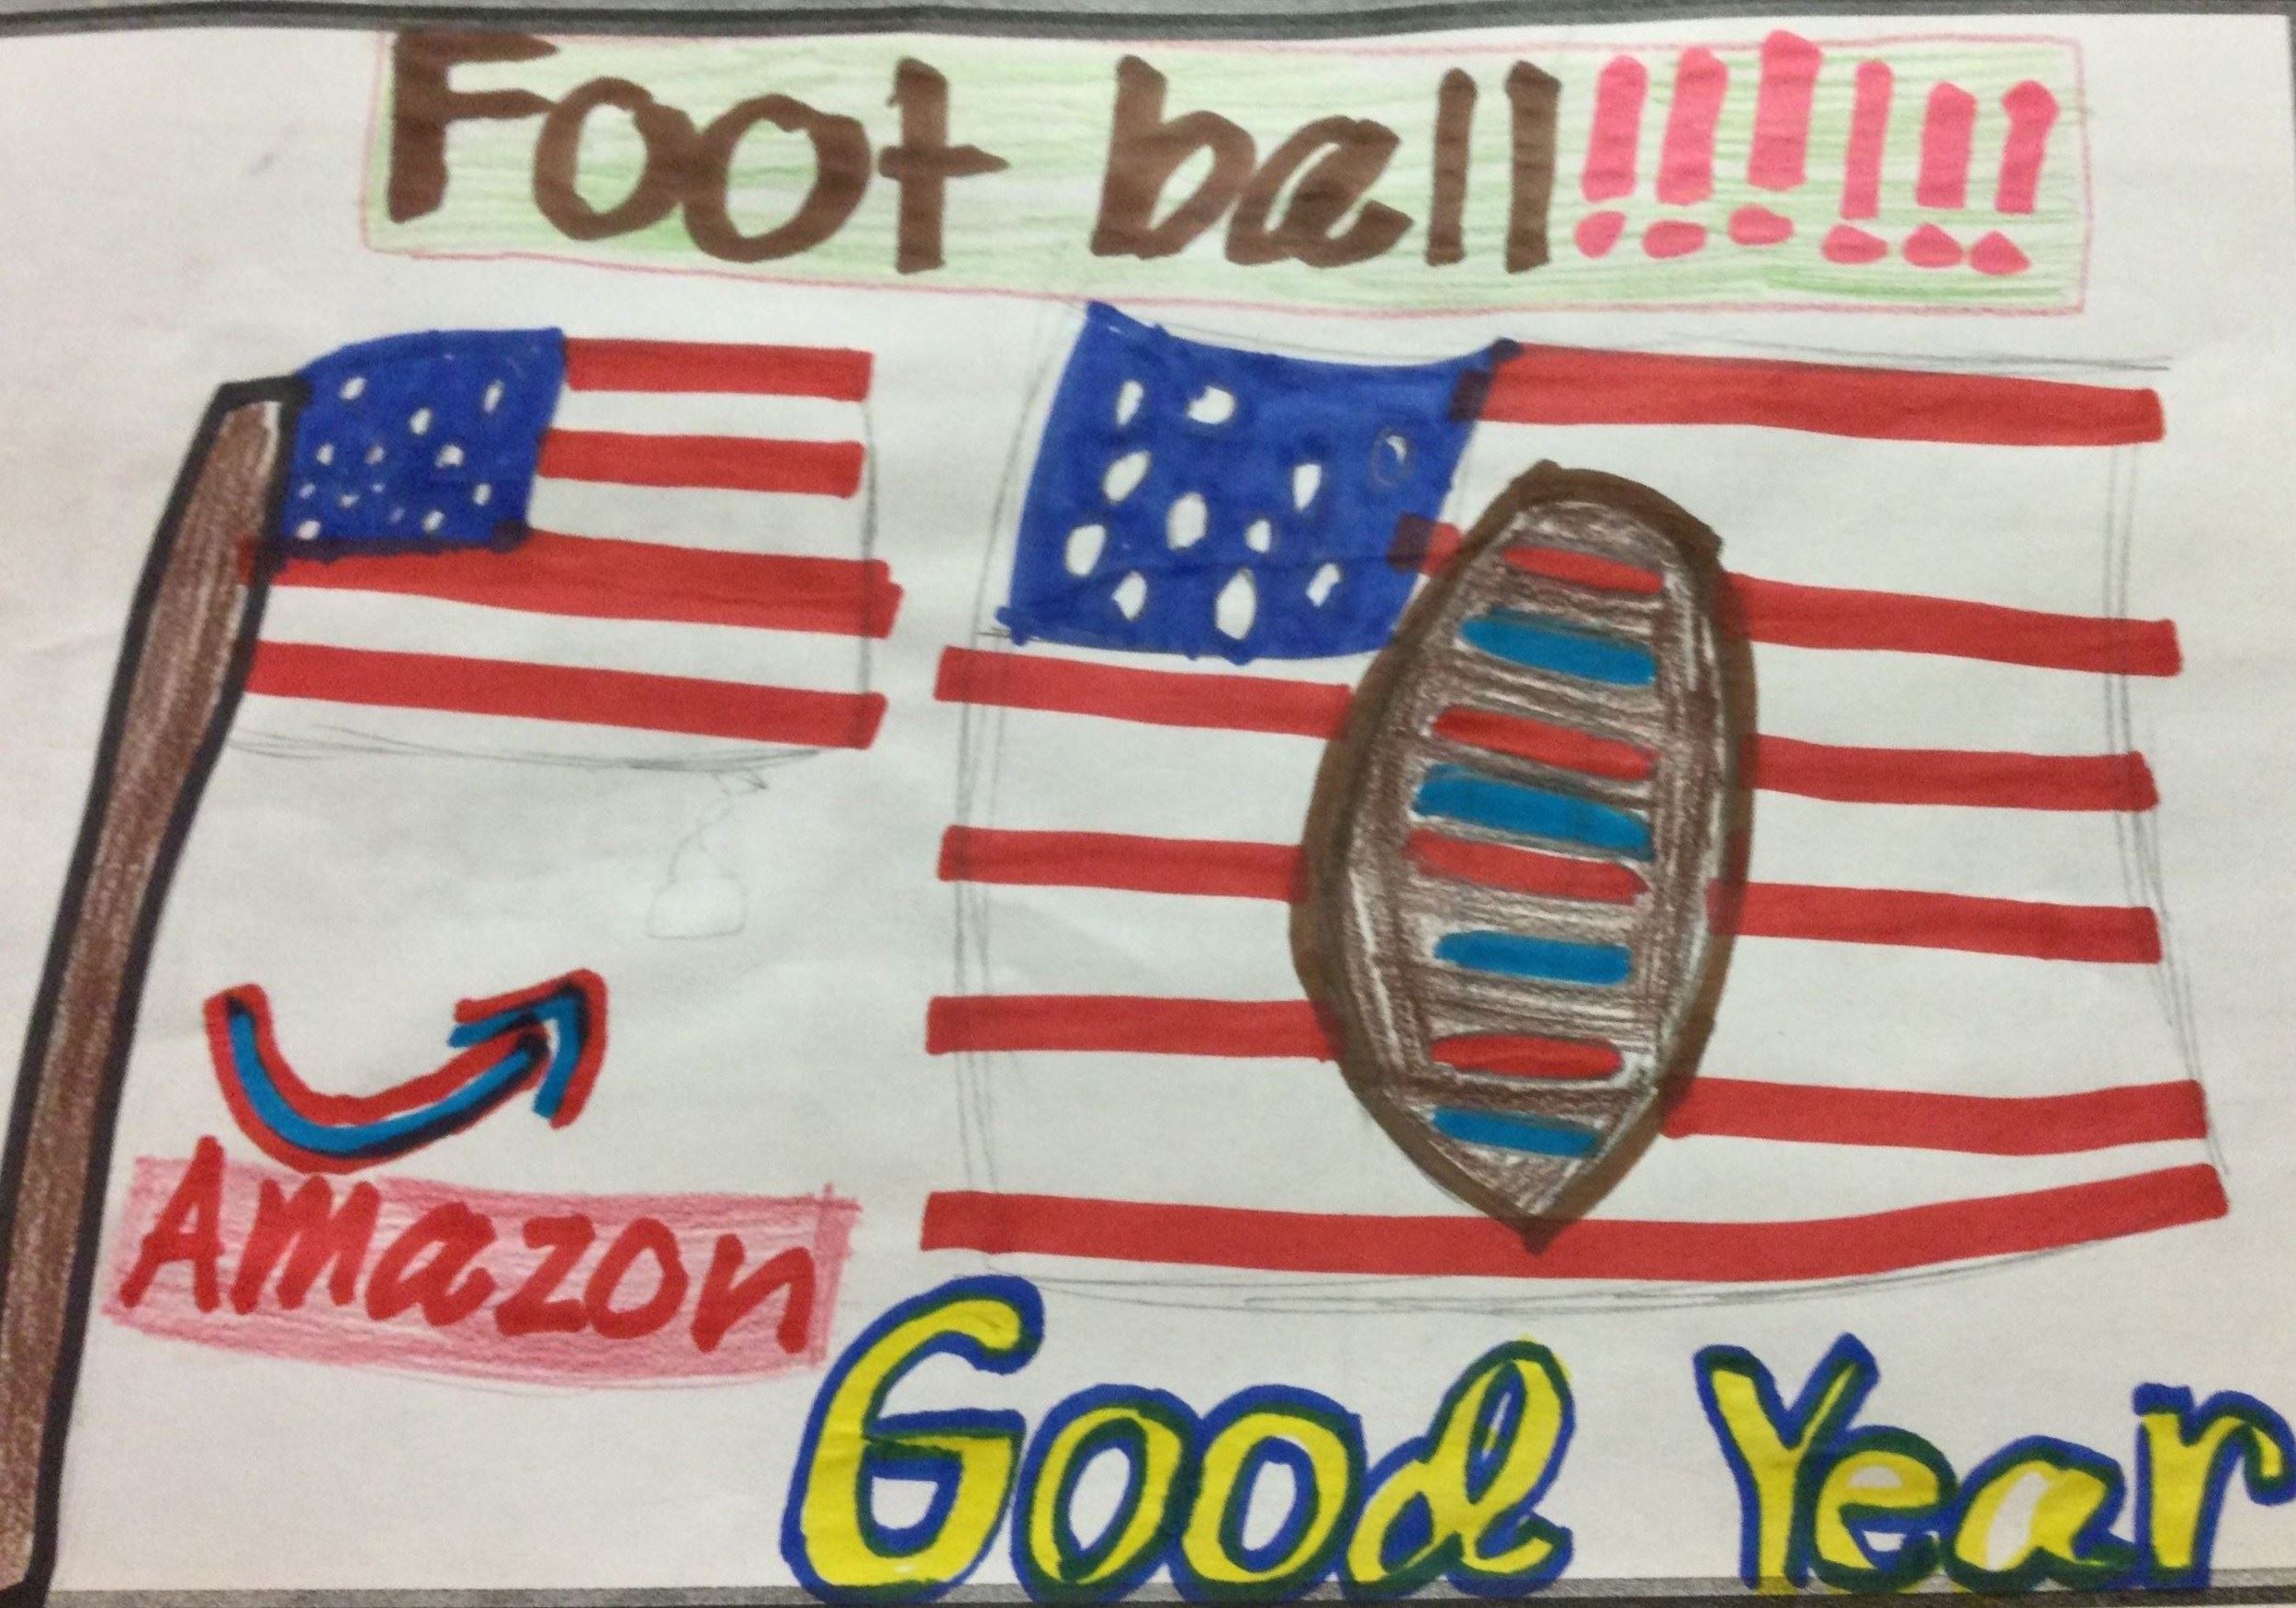 Foot ball!!!!!!
Amazon
Good Year